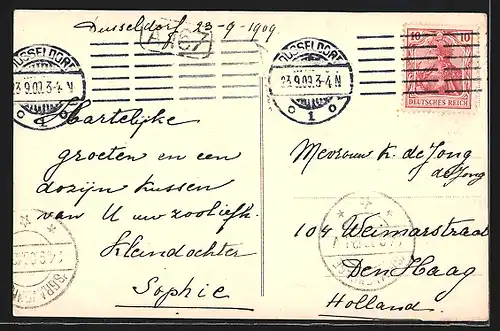 Dusseldorf 23-9-1909
DÜSSELDORF
23.9.09.3-4N
1
DÜSSELDORF
23.9.09.3-4N
1
10 10
DEUTSCHES REICH
Hartelijke
groeten en een
dozijn kussen
van U uw zooliefh.
Kleindochter
Sophie
Mevrouw K. de Jong
de Jong
104 Weimarstraat
Den Haag
Holland.